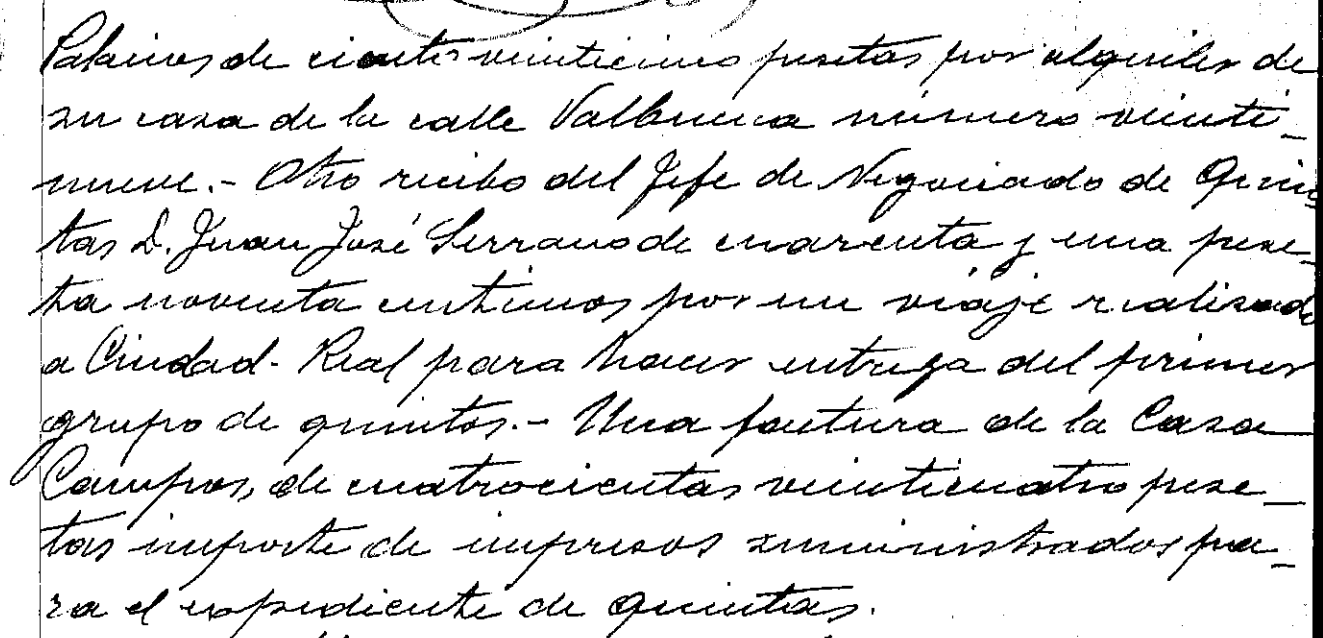 Palacios de ciento veinticinco pesetas por alquiler de
su casa de la calle Valbuena número veinti-
nueve.- Otro recibo del Jefe de Negociado de Quin-
tas D. Juan José Serrano de cuarenta y una pese-
ta noventa centimos por un viaje realizado
a Ciudad-Real para hacer entrega del primer
grupo de quintos.- Una factura de la Casa
Campos, de cuatrocientas veinticuatro pese-
tas importe de impresos suministrados pa-
ra el expediente de quintas.